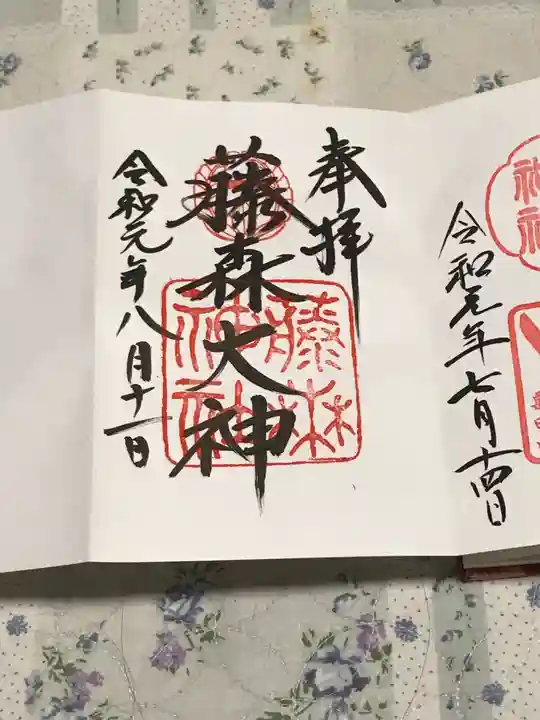 令和元年七月十四日
神社
奉拝
藤森大神
藤森神社
令和元年八月十一日